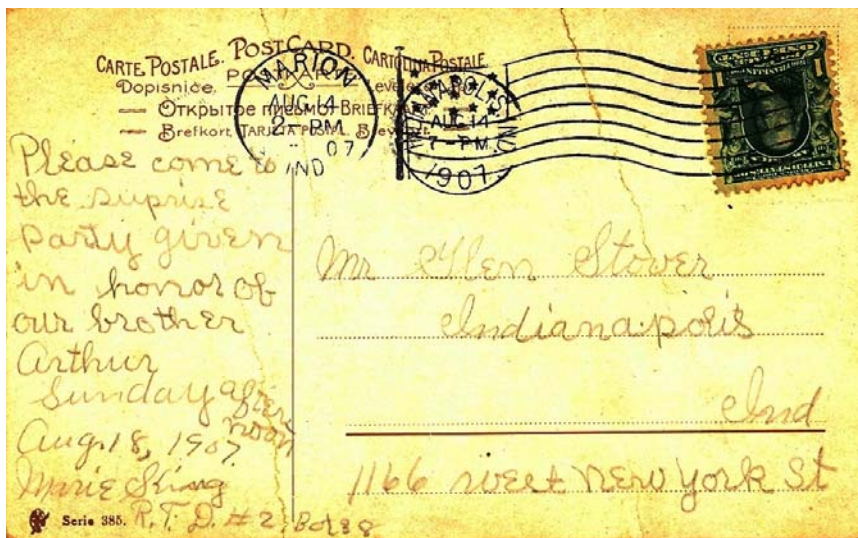 CARTE POSTALE. POSTCARD. CARTOLINA POSTALE.
Dopisnice.
Открытое письмо. BRIEFKA
Brefkort. TARJETA POSTAL.
MARION
AUG 14
2-PM
07
IND
INDIANAPOLIS, IND
AUG 14
7-PM
1907
1
Please come to
the suprise
Party given
in honor of
our brother
Arthur
Sunday after
noon
Aug. 18, 1907.
Marie
R. F. D. #2, Box
Serie 385.
Mr Glen Stover
Indianapolis
Ind
1166 west New York St